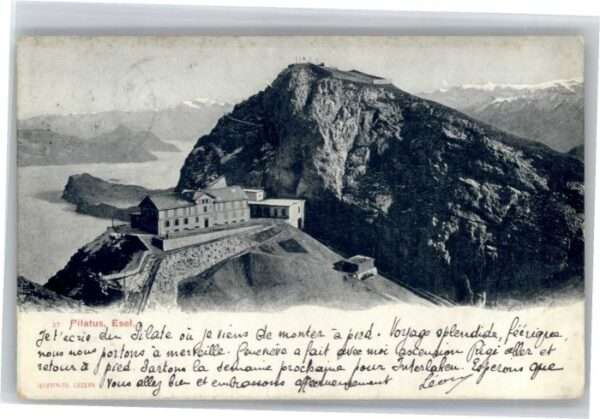 17 Pilatus, Esel.
Je t'écris du Pilate où je viens de monter à pied. Voyage splendide, féérique,
nous nous portons à merveille. a fait avec moi l'ascension Rigi aller et
retour à pied. Partons la semaine prochaine pour Interlaken. Espérons que
vous allez bien et embrassons affectueusement Léon